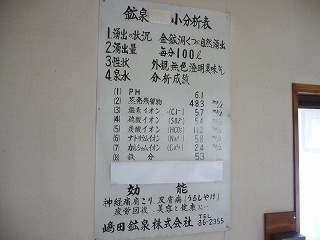 鉱泉 小分析表
1湧出の状況 金鉱洞くつの自然湧出
2湧出量 毎分100ℓ
3性状 外観無色澄明臭味气
4泉水 分析成績
(1) PH 6.1
(2) 蒸発残留物 48.3
(3) 塩素イオン (Cl⁻) 5.7
(4) 硫酸イオン 5.4
(5) 炭酸イオン 11.2
(6) ナトリウムイオン 5.8
(7) カルシュムイオン 2.4
(8) 鉄分 5.3
効能
神経痛肩こり、皮膚病(うるしやけ)
疲労回復、美容と健康に
嶋田鉱泉株式会社 TEL 86-2355